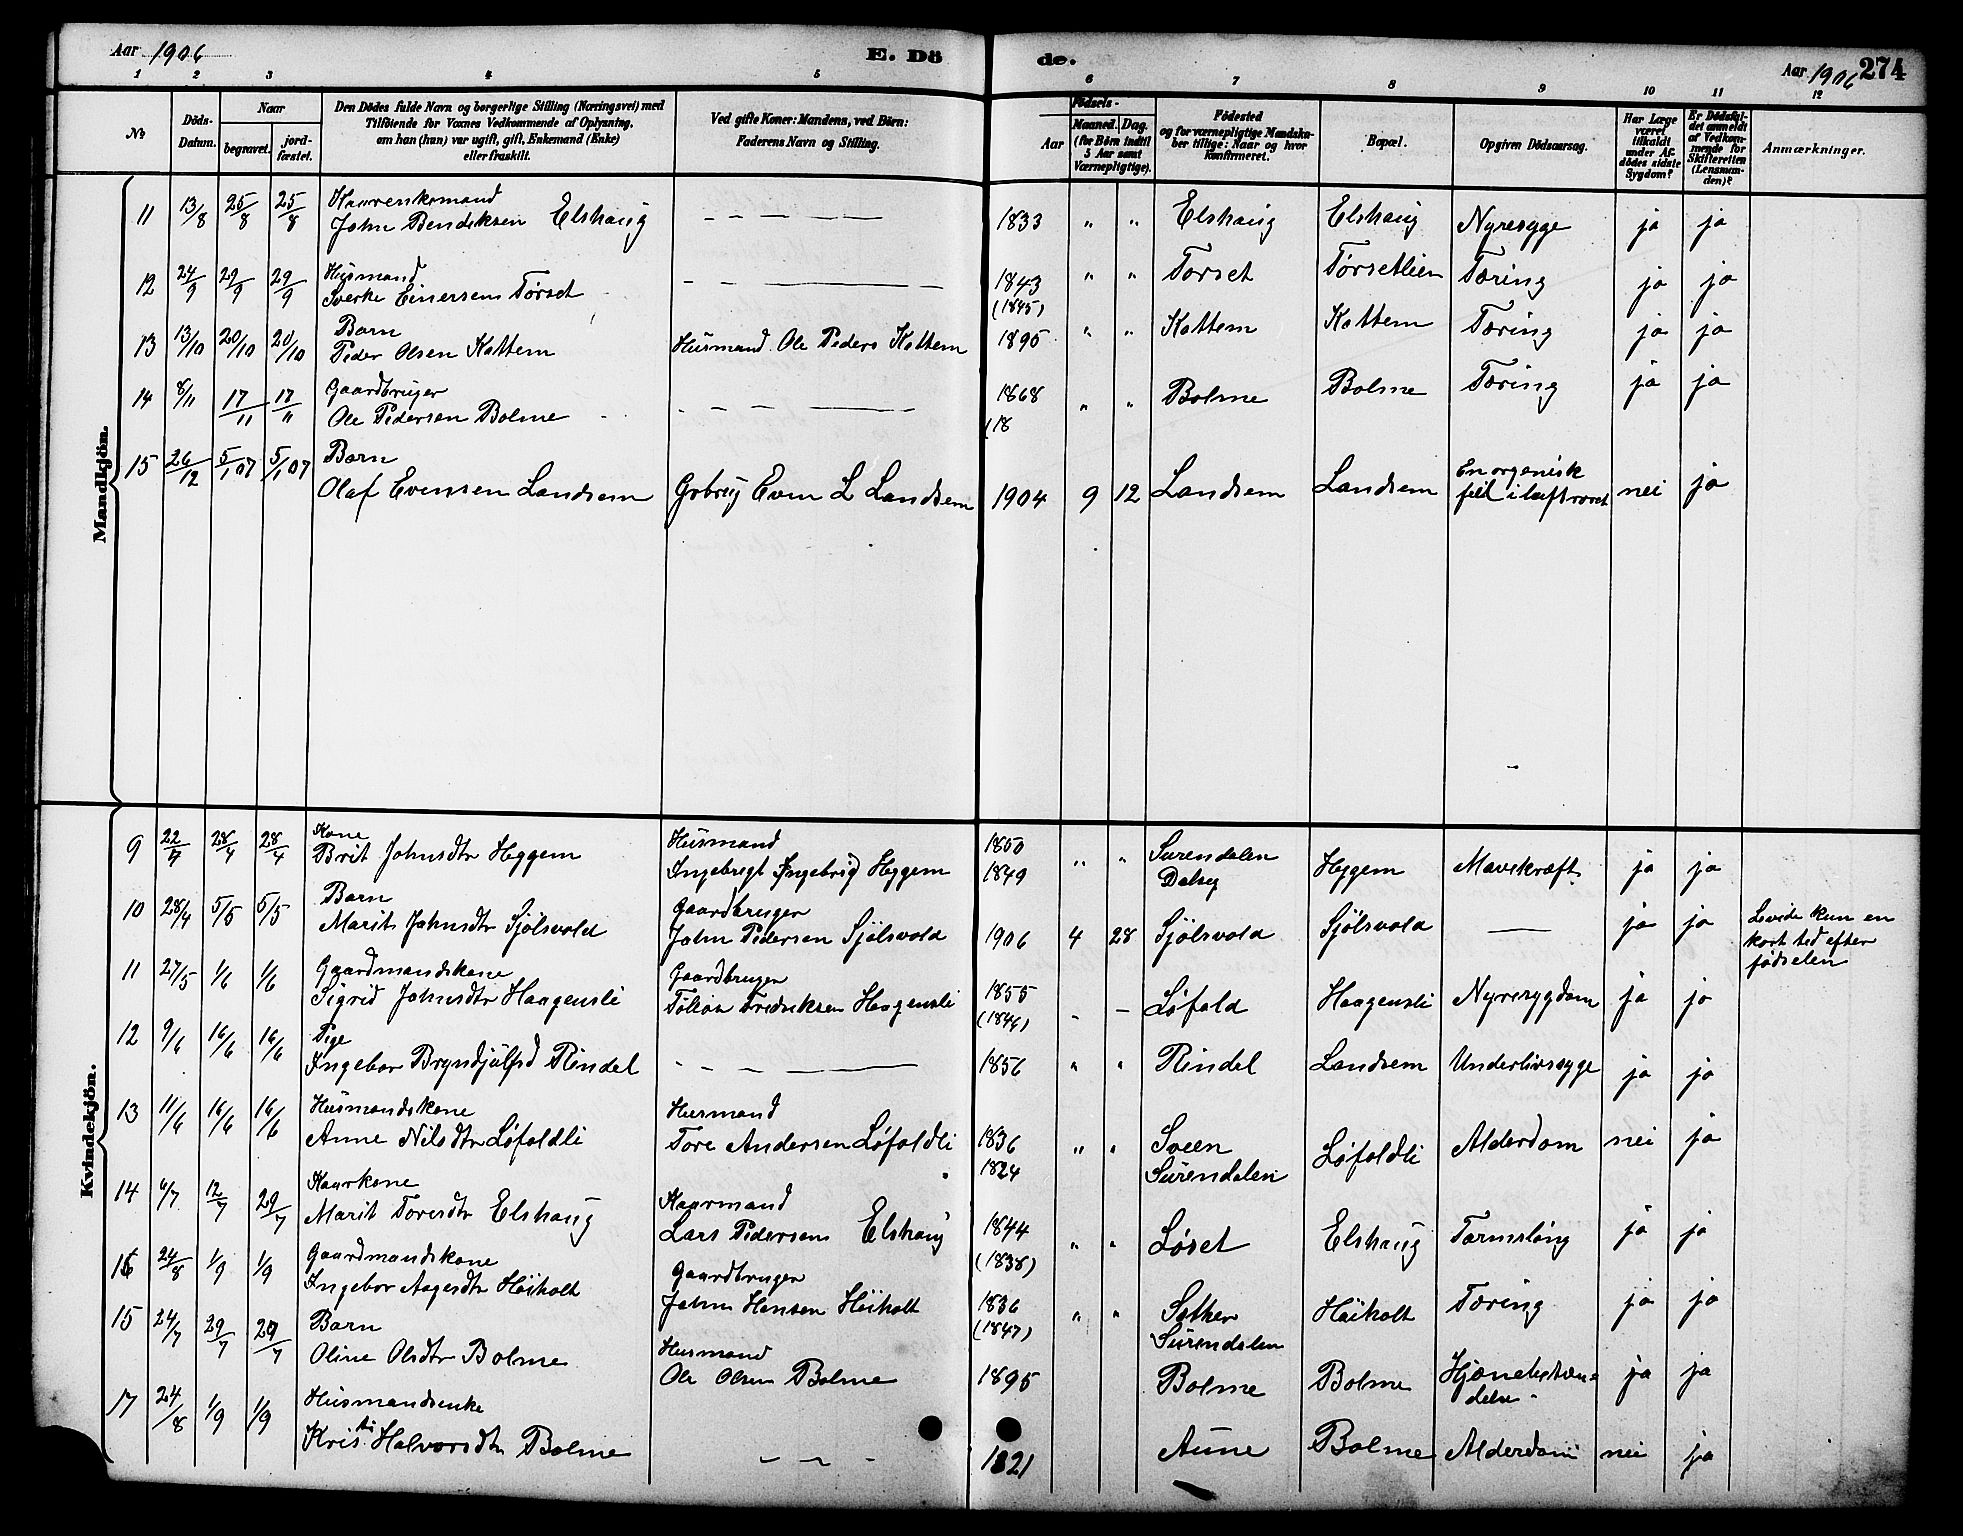 Aar 1906 E. Dö de. Aar 1906 274
1 2 3 4 5 6 7 8 9 10 11 12
No
Döds-Datum.
Naar
begravet.
jord-fæstet.
Den Dödes fulde Navn og borgerlige Stilling (Næringsvei) med
Tilföiende for Voxnes Vedkommende af Oplysning,
om han (hun) var ugift, gift, Enkemand (Enke)
eller fraskilt.
Ved gifte Koner: Mandens, ved Börn:
Faderens Navn og Stilling.
Födsels-
Aar
Maaned. Dag.
(for Börn indtil
5 Aar samt
Værnepligtige).
Födested
og for værnepligtige Mandska-
ber tillige: Naar og hvor
konfirmeret.
Bopæl.
Opgiven Dödsaarsag.
Har Læge
været
tilkaldt
under Af-
dödes sidste
Sygdom?
Er Dödsfal-
det anmeldt
af Vedkom-
mende for
Skifteretten
(Lensman-
den)?
Anmærkninger.
Mandkjön.
11 13/8 25/8 25/8
John Bendiksen Elshaug — — — 1833 " " Elshaug Elshaug Nyresyge ja ja
12 24/9 29/9 29/9 Husmand
Sverke Einersen Tørset — — — 1843 " " Torset Tørsetlien Tæring ja ja
(1845)
13 13/10 20/10 20/10 Barn
Peder Olsen Kattem Husmand Ole Peders Kattem 1895 " " Kattem Kattem Tæring ja ja
14 8/11 17/11 17/11 Gaardbruger
Ole Pedersen Bolme — — — 1868 " " Bolme Bolme Tæring ja ja
(18
15 26/12 5/1 07 5/1 07 Barn
Olaf Evensen Landsem Grbrug Even L Landsem 1904 9 12 Landsem Landsem En organisk
feil i luftrøret nei ja
Kvindekjön.
9 22/4 28/4 28/4 Kone
Brit Johnsdtr Heggem Husmand
Ingebrigt Heggem 1850
1849 " " Surendalen
Dalsey Heggem Mavekræft ja ja
10 28/4 5/5 5/5 Barn
Marit Johnsdtr Sjölsvold Gaardbruger
John Pedersen Sjölsvold 1906 4 28 Sjölsvold Sjölsvold — ja ja Levede kun en
kort tid efter
födselen
11 27/5 1/6 1/6 Gaardmandskone
Sigrid Johnsdtr Haagensli Gaardbruger
Fredriksen Haagensli 1855
(1846) - — Løfald Haagensli Nyresygdom ja ja
12 9/6 16/6 16/6 Pige
Ingebor Bryndjulfsd Rindal — — — 1856 " " Rindal Landsem Underlivssyge ja ja
13 11/6 16/6 16/6 Husmandskone
Anne Nilsdtr Løfaldli Husmand
Tore Andersen Løfaldli 1836
1824 " " Sveen
Surendalen Løfaldli Alderdom nei ja
14 6/7 12/7 29/7 Kaarkone
Marit Toresdtr Elshaug Kaarmand
Lars Pedersen Elshaug 1844
(1838) " " Løset Elshaug Tarmslyng ja ja
16 24/8 1/9 1/9 Gaardmandskone
Ingebor Aagesdtr Höiholt Gaardbruger
John Hansen Höiholt 1836
(1847) " " Sæther
Surendalen Höiholt Tæring ja ja
15 24/7 29/7 29/7 Barn
Oline Olsdtr Bolme Husmand
Ole Olsen Bolme 1895 Bolme Bolme Hjernebetæn-
delse ja ja
17 24/8 1/9 1/9 Husmandsenke
Kristi Halvorsdtr Bolme — — — 1821 Aune Bolme Alderdom nei ja